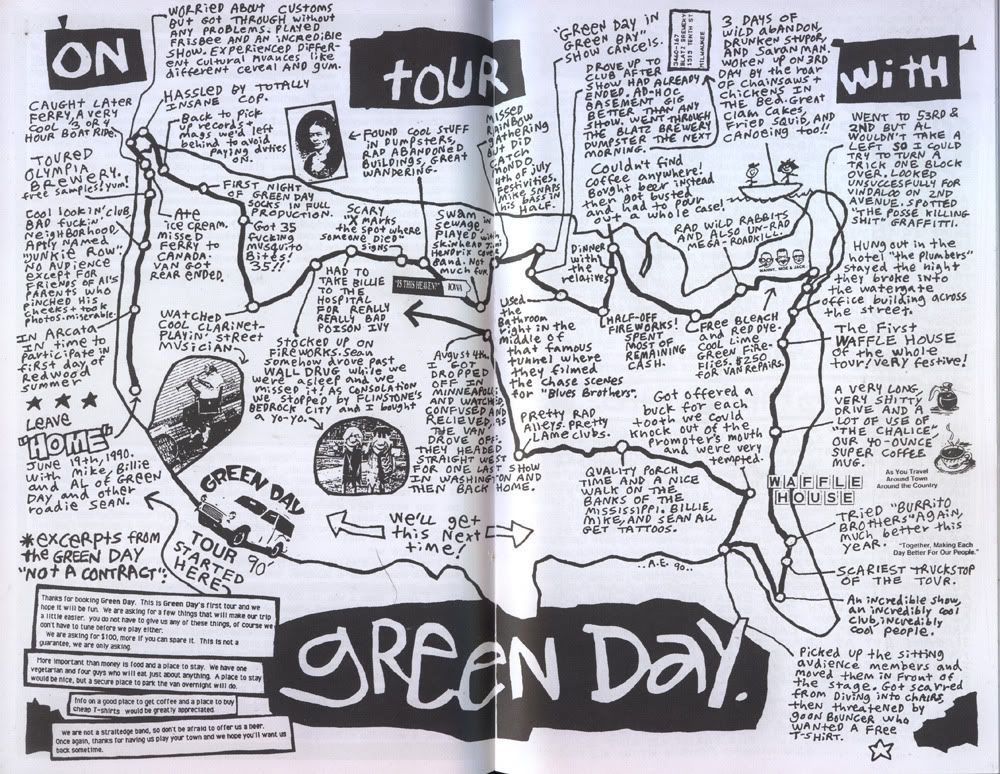 ON
tour
with
WORRIED ABOUT CUSTOMS
BUT GOT THROUGH without
ANY PROBLEMS. PLAYED
FRISBEE AND AN INCREDIBLE
SHOW. EXPERIENCED DIFFER-
ENT CULTURAL NUANCES LIKE
DIFFERENT CEREAL AND GUM.
HASSLED BY TOTALLY
INSANE COP.
CAUGHT LATER
FERRY, A VERY
COOL 2 OR 4
HOUR BOAT RIDE.
Back to Pick
up records +
mags we'd left
behind to avoid
Paying duties
on.
FOUND COOL STUFF
IN DUMPSTERS,
RAD ABANDONED
BUILDINGS, GREAT
WANDERING.
TOURED
OLYMPIA
BREWERY.
free samples! yum!
FIRST NIGHT
OF GREEN DAY
SOCKS IN FULL
PRODUCTION.
Ate
ICE CREAM,
MISSED
FERRY TO
CANADA.
VAN GOT
REAR ENDED.
GOT 35
fucking
MUSQUITO
Bites!
35!!
Cool lookin' club,
BAD fuckin'
NEIGHBORHOOD,
APTLY NAMED
"JUNKIE ROW."
NO AUDIENCE
EXCEPT FOR
FRIENDS OF AL'S
PARENTS WHO
PINCHED HIS
cheeks + took
photos. miserable.
SCARY
'X' MARKS
the SPOT where
someone DIED
signs
MISSED
RAINBOW
gathering
BUT DID
CATCH
MONDO
4th of july
FESTIVITIES.
MIKE SNAPS
his BASS in
HALF.
SWAM in
SEWAGE,
PLAYED with
SKINHEAD Jimi
HENDRIX cover
BAND. NOT
much fun.
"IS THIS HEAVEN?" IOWA
HAD TO
TAKE BILLIE
TO THE
HOSPITAL
FOR REALLY
REALLY BAD
POISON IVY
WATCHED
COOL CLARINET-
PLAYIN' STREET
MUSICIAN
IN ARCATA
IN time to
participate in
first day of
Redwood
summer
STOCKED UP ON
FIREWORKS. Sean
somehow drove past
WALL DRUG while we
were asleep and we
missed it! AS CONSOLATION
we STOPPED BY FLINSTONE'S
BEDROCK CITY and I bought
a yo-yo.
AUGUST 4th,
I GOT
DROPPED
OFF IN
MINNEAPOLIS
AND WATCHED,
CONFUSED AND
RELIEVED, AS
THE VAN
DROVE OFF.
THEY HEADED
STRAIGHT WEST
FOR ONE LAST SHOW
IN WASHINGTON AND
THEN BACK HOME.
LEAVE
"HOME"
JUNE 19th, 1990.
With Mike, Billie
and AL of GREEN
DAY and other
roadie SEAN.
GREEN DAY
TOUR 90'
STARTED
HERE
*EXCERPTS from
the GREEN DAY
"NOT A CONTRACT":
Thanks for booking Green Day. This is Green Day's first tour and we
hope it will be fun. We are asking for a few things that will make our trip
a little easier. you do not have to give us any of these things, of course we
don't have to tune before we play either.
We are asking for $100, more if you can spare it. This is not a
guarantee, we are only asking.
More important than money is food and a place to stay. We have one
vegetarian and four guys who will eat just about anything. A place to stay
would be nice, but a secure place to park the van overnight will do.
Info on a good place to get coffee and a place to buy
cheap T-shirts would be greatly appreciated.
We are not a straitedge band, so don't be afraid to offer us a beer.
Once again, thanks for having us play your town and we hope you'll want us
back sometime.
We'll get
this Next
time!
"GREEN DAY in
GREEN BAY"
SHOW CANCELS.
DROVE UP TO
CLUB AFTER
SHOW HAD ALREADY
ENDED. AD-HOC
BASEMENT GIG
BETTER THAN ANY
SHOW. WENT THROUGH
THE BLATZ BREWERY
DUMPSTER THE NEXT
MORNING.
BLATZ BREWERY
1515 TENTH ST
MILWAUKEE
3 DAYS OF
WILD ABANDON,
DRUNKEN STUPOR,
AND SARAN MAN.
WOKEN UP ON 3RD
DAY by the ROAR
OF CHAINSAWS +
CHICKENS IN
THE BED. GREAT
Clam Cakes,
FRIED SQUID, AND
CANOEING TOO!!
Couldn't find
Coffee anywhere!
Bought beer instead
then got busted
and had to pour
out a whole case!
RAD WILD RABBITS
AND ALSO UN-RAD
MEGA-ROADKILL.
MANNY, MOE & JACK
Dinner
with
the
relatives
WENT TO 53RD &
2ND BUT AL
WOULDN'T TAKE A
LEFT SO I COULD
TRY TO TURN A
TRICK ONE BLOCK
OVER. LOOKED
UNSUCCESFULLY FOR
VINDALOO ON 2ND
AVENUE. SPOTTED
"THE POSSE KILLING
SHITE" GRAFFITI.
HUNG OUT in the
HOTEL "the Plumbers"
stayed the night
they broke into
the watergate
office building across
the street.
The First
WAFFLE HOUSE
of the whole
tour! VERY festive!
Used the
Bathroom
right in the
middle of
that famous
tunnel where
they filmed
the chase scenes
for "Blues Brothers".
HALF-OFF
FIREWORKS!
SPENT
MOST OF
REMAINING
CASH.
FREE BLEACH
AND RED DYE.
COOL LIME
GREEN FIRE-
FLIES. $250
FOR VAN REPAIRS.
A VERY LONG,
VERY SHITTY
DRIVE AND A
LOT OF USE OF
"THE CHALICE"
OUR 40-OUNCE
SUPER COFFEE
MUG.
Pretty Rad
Alleys. Pretty
LAME clubs.
GOT OFFERED A
buck for each
tooth we could
knock out of the
promoter's mouth
and were very
tempted.
QUALITY PORCH
TIME AND A NICE
WALK ON THE
BANKS OF THE
MISSISSIPPI. BILLIE,
MIKE, AND SEAN ALL
GET TATTOOS.
WAFFLE
HOUSE
As You Travel
Around Town
Around the Country
TRIED "BURRITO
BROTHERS" AGAIN,
much better this
year.
"Together, Making Each
Day Better For Our People."
SCARIEST TRUCKSTOP
OF THE TOUR.
AN incredible show,
an incredibly cool
club, incredibly
cool people.
..A.E. 90..
PICKED UP the SITTING
audience members and
moved them in front of
the stage. Got scarred
from Diving into CHAIRS,
then threatened by
goon BOUNCER who
WANTED A FREE
T-SHIRT.
GREEN DAY.